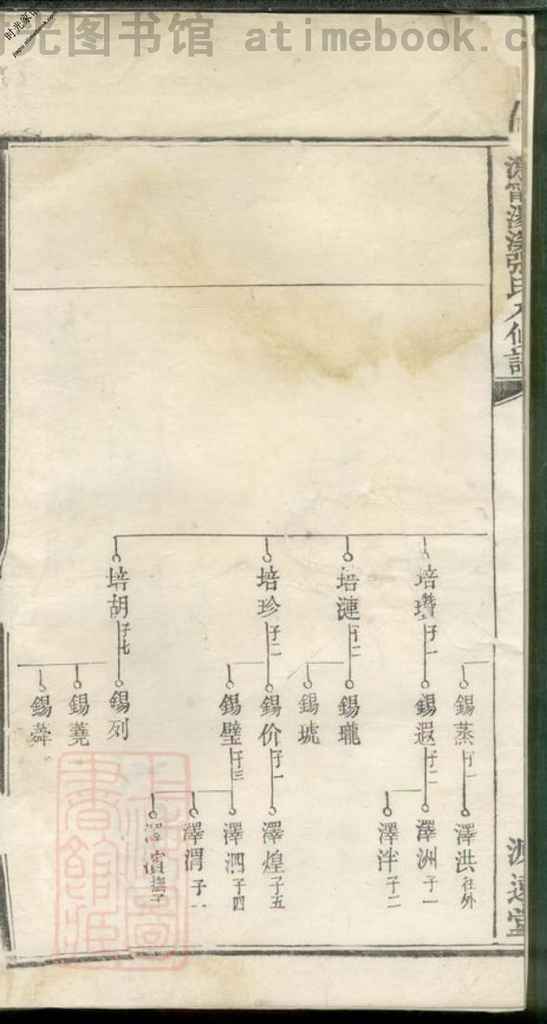 时光图书馆 atimebook.com
張氏六修譜
源遠堂
培瓚 子一
培漣 子二
培珍 子二
培胡 子七
錫蒸 子一
錫遐 子二
錫瓏
錫琥
錫价 子一
錫璧 子三
錫列
錫蕘
錫舜
澤洪 往外
澤洲 子一
澤泮 子二
澤煌 子五
澤泗 子四
澤渭 子一
澤 撫子
上海圖書館藏